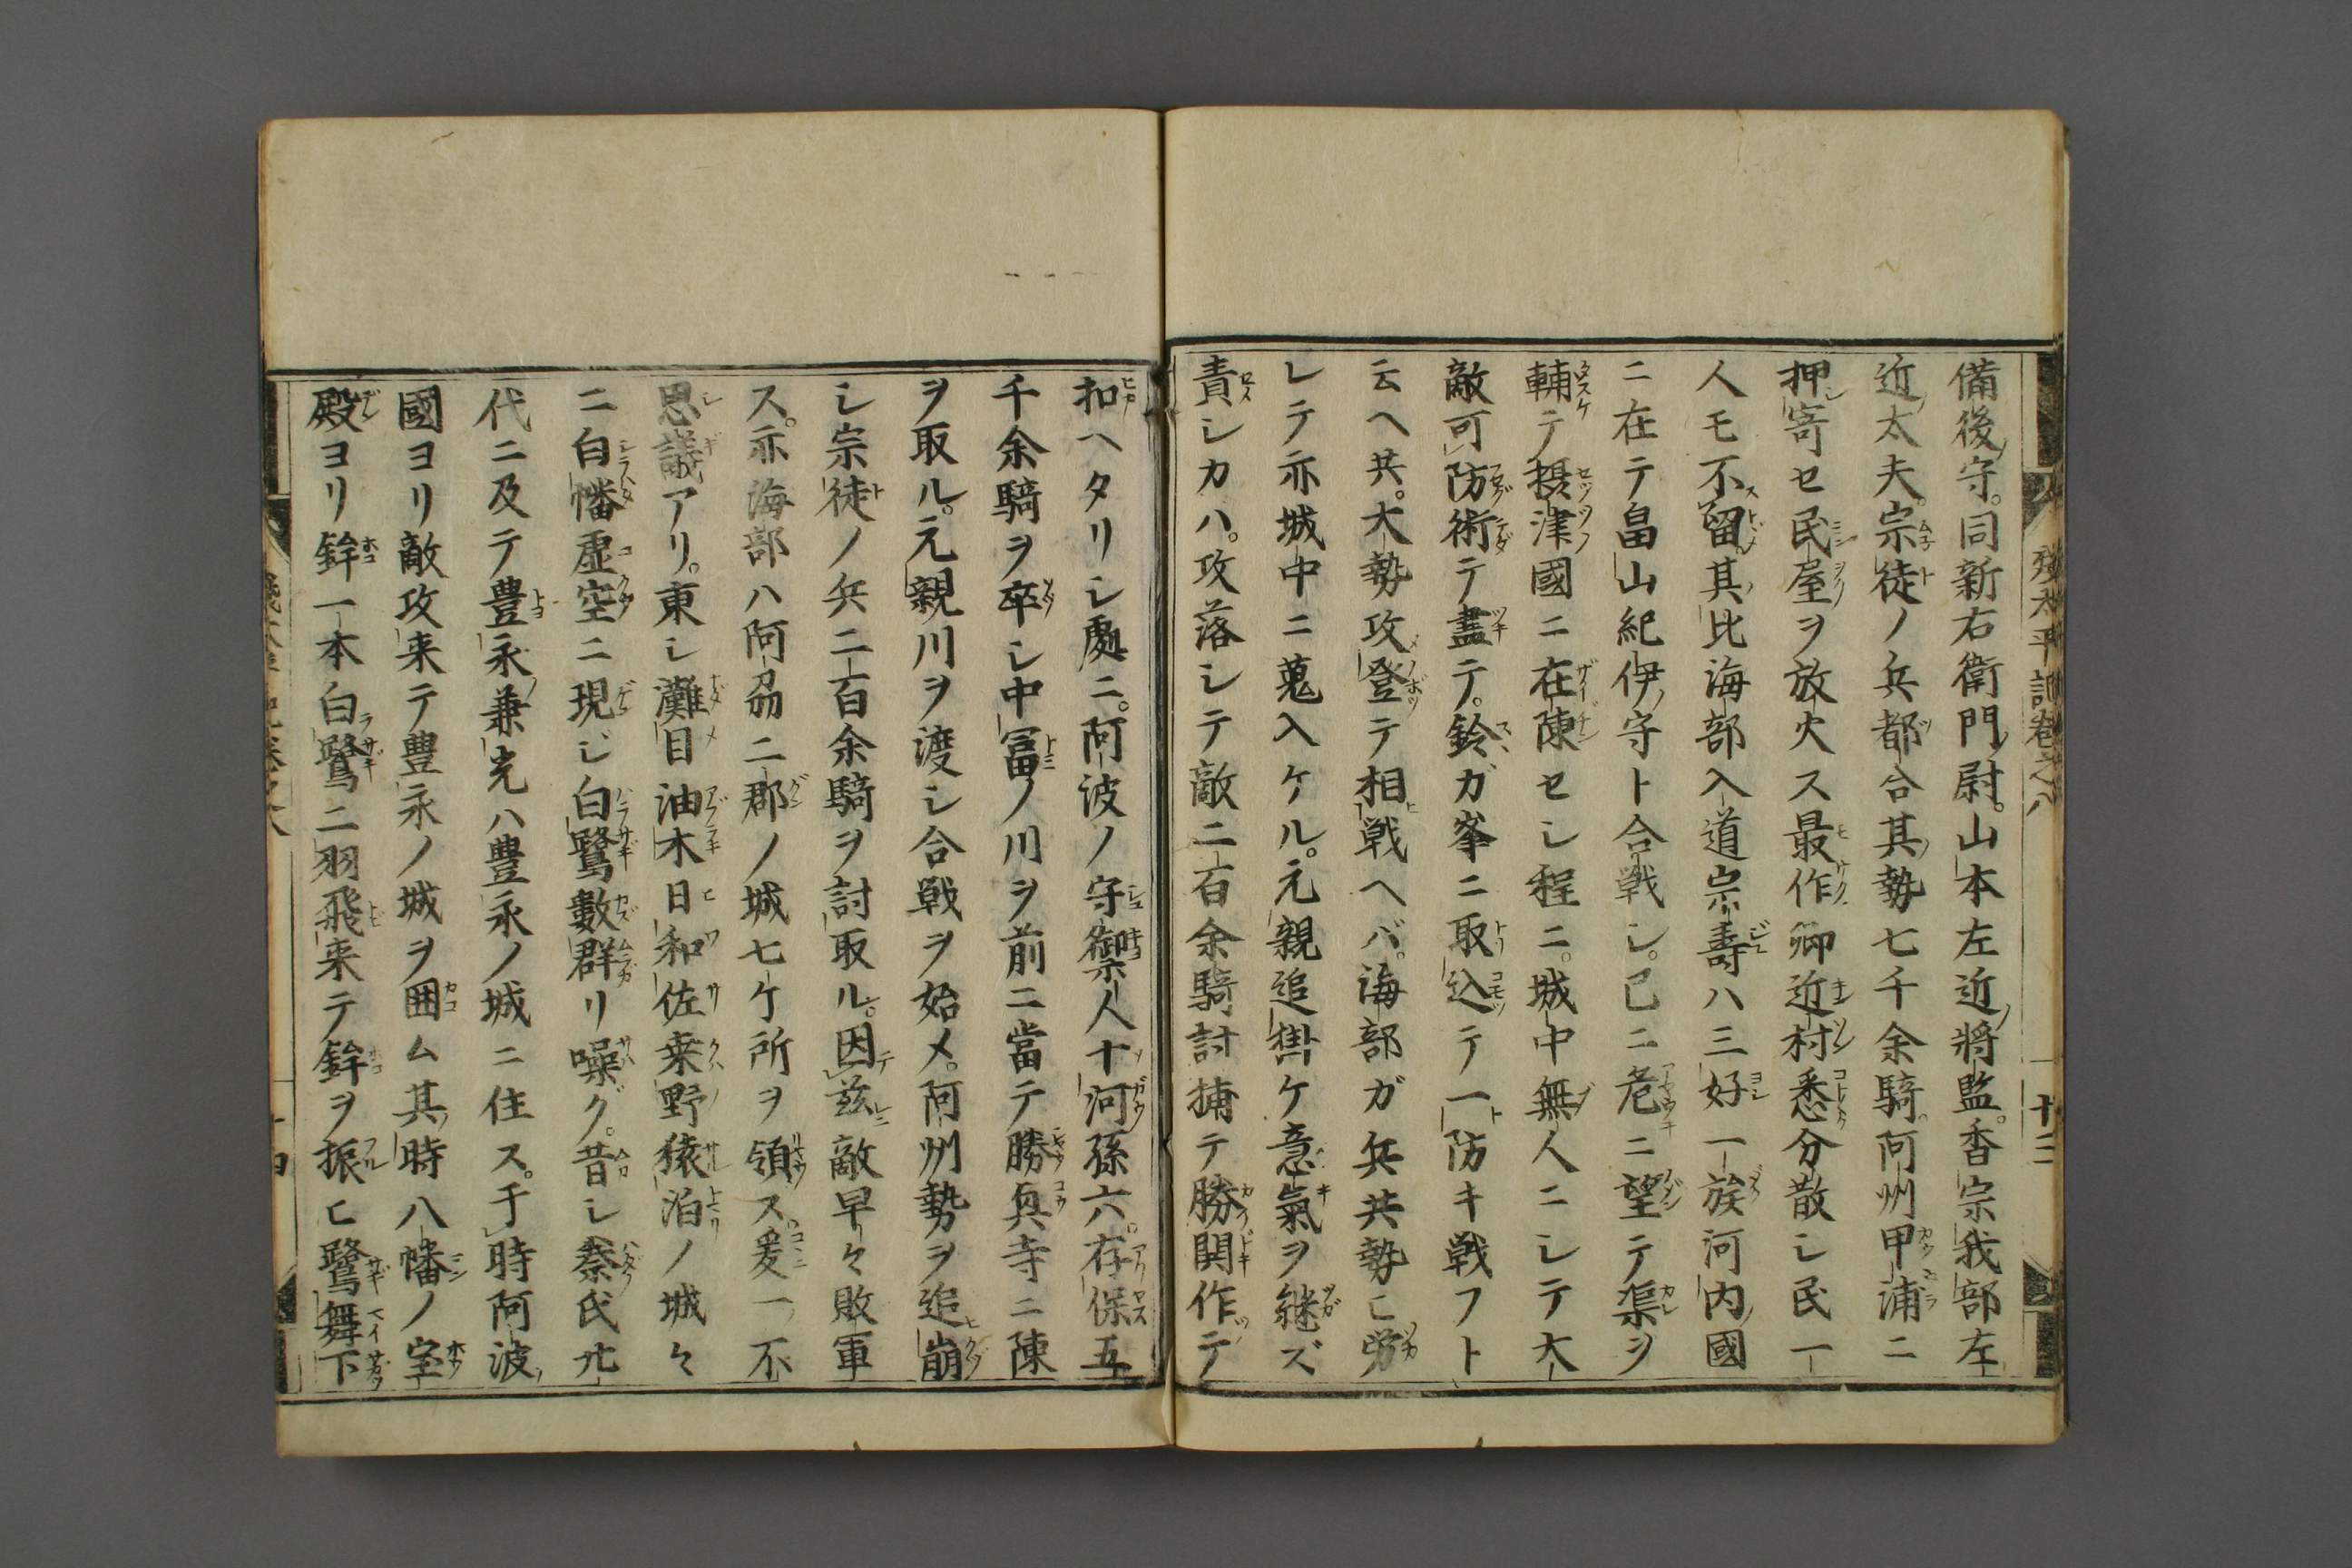 備後守。同新右衛門尉。山本左近將監。香宗我部左
近太夫。宗徒ノ兵都合其勢七千余騎。阿州甲浦ニ
押寄セ民屋ヲ放火ス最作卿近村悉分散シ民一
人モ不留其比海部入道宗壽ハ三好一族河内國
ニ在テ畠山紀伊守ト合戦シ。已ニ危ニ望テ渠ヲ
輔テ摂津國ニ在陳セシ程ニ。城中無人ニシテ大
敵可防術テ盡テ。鈴ガ峯ニ取込テ一防キ戦フト
云ヘ共。大勢攻登テ相戦ヘバ。海部ガ兵共勢ヒ労
レテ亦城中ニ蒐入ケル。元親追掛ケ意氣ヲ継ズ
責シカハ。攻落シテ敵二百余騎討捕テ勝閧作テ
扣ヘタリシ處ニ。阿波ノ守禦人十河孫六。存保五
千余騎ヲ卒シ中冨ノ川ヲ前ニ當テ勝興寺ニ陳
ヲ取ル。元親川ヲ渡シ合戦ヲ始メ。阿州勢ヲ追崩
シ宗徒ノ兵二百余騎ヲ討取ル。因茲敵早々敗軍
ス。亦海部ハ阿刕二郡ノ城七ケ所ヲ領ス。爰一不
思議アリ。東シ灘目油木日和佐桒野猿泊ノ城々
ニ白幡虚空ニ現ジ白鷺數群リ噪グ。昔シ秦氏廿
代ニ及テ豊永兼光ハ豊永ノ城ニ住ス。于時阿波
國ヨリ敵攻来テ豊永ノ城ヲ囲ム其時八幡ノ宝
殿ヨリ鉾一本白鷺二羽飛来テ鉾ヲ振ヒ鷺舞下
残太平記巻之八
十三